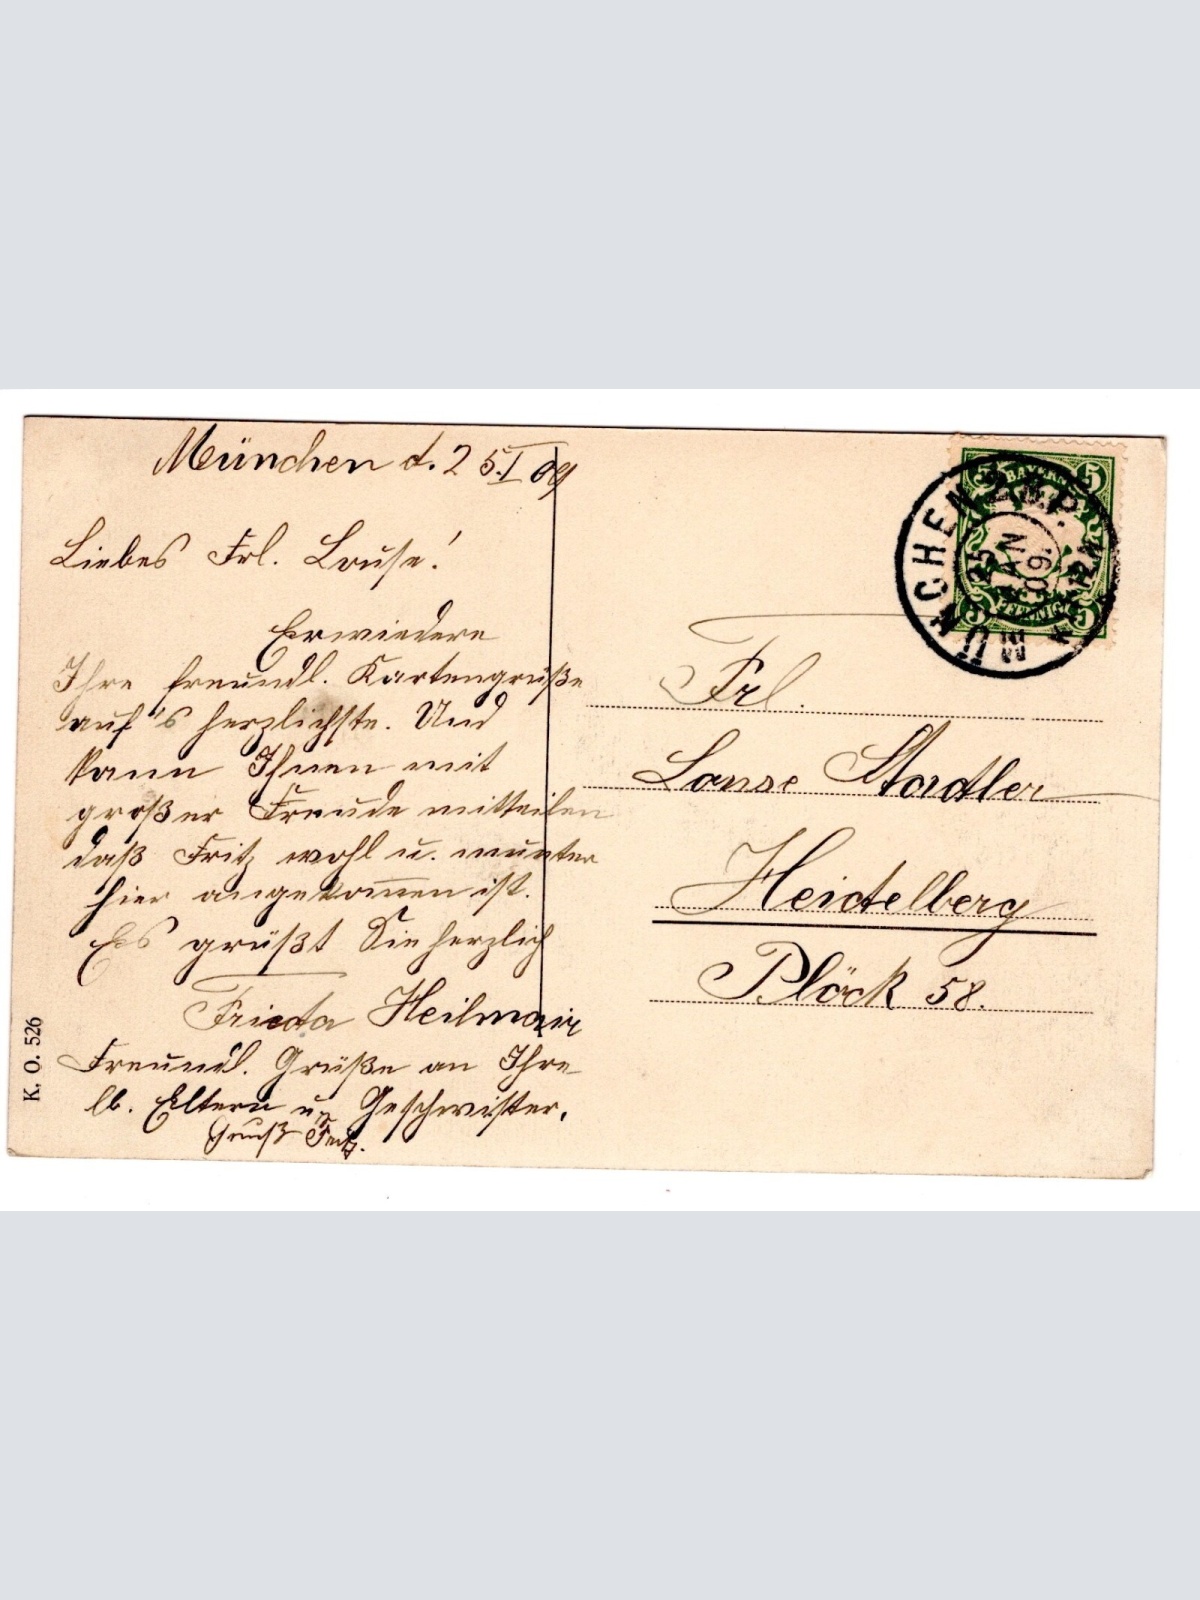 München d. 25.I 09
Liebes Frl. Louise!
Erwiedere
Ihre freundl. Kartengrüße
auf's herzlichste. Und
kann Ihnen mit
großer Freude mitteilen
daß Fritz wohl u. munter
hier angekommen ist.
Es grüßt Sie herzlich
Frieda Heilmair
Freundl. Grüße an Ihre
lb. Eltern u. Geschwister.
Gruß Fritz.
K. O. 526
BAYERN
5 5
PFENNIG
5 5
MÜNCHEN 2 B.P.
25
JAN
09.
Frl.
Louse Stadler
Heidelberg
Plöck 58.